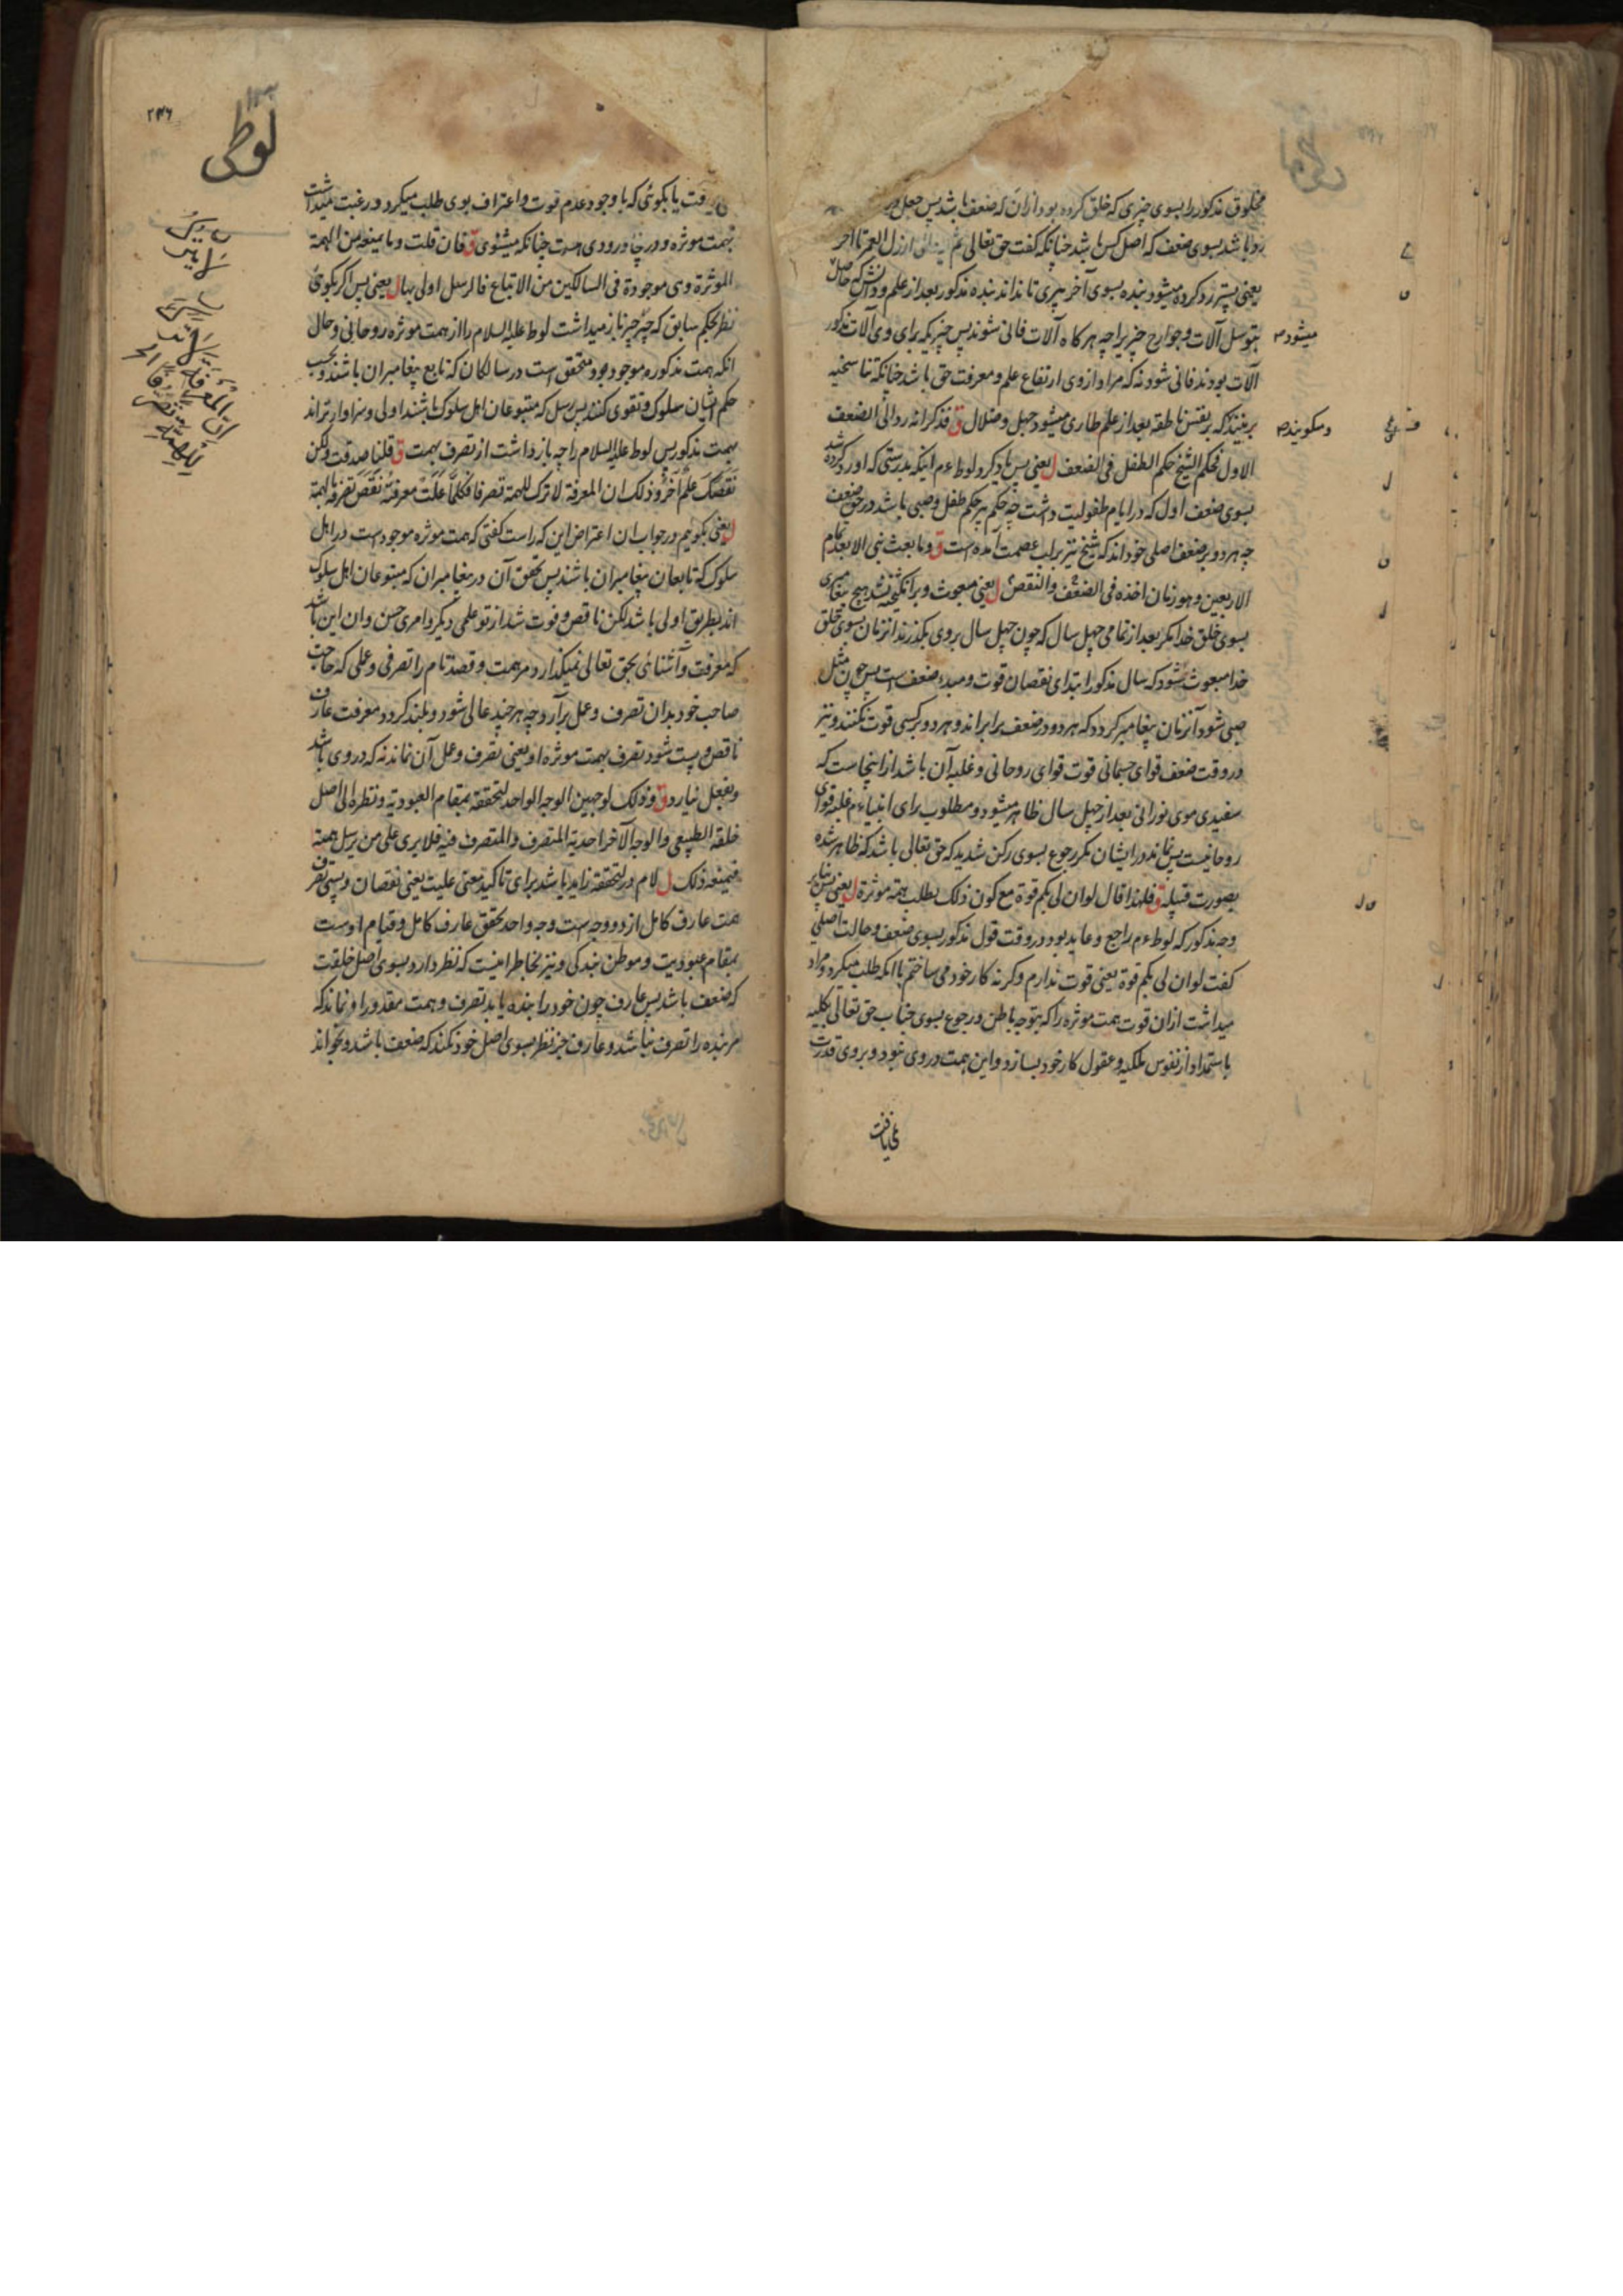 مخلوق مذکور را بسوی چیزی که خلق کرده بود ازان که ضعف باشد پس جعل
رد باشد بسوی ضعف که اصل کس باشد چنانکه گفت حق تعالی ثم ارذل العمر تا آخر
یعنی پستر رد کرده میشود بنده بسوی آخر پیری تا نداند بنده مذکور بعد از علم و دانش که حاصل
میشود
بتوسل آلات و جوارح چیزیرا چه هر کاه آلات فانی شوند پس چیزیکه برای وی آلات مذکور
آلات بودند فانی شود نه که مراد از وی ارتفاع علم و معرفت حق باشد چنانکه تناسخیه
برینند که بر نفس ناطقه بعد از علم طاری میشود جهل و ضلال ق فذکر انه رد الی الضعف
ومیکویند
الاول فحکم الشیخ حکم الطفل فی الضعف ل یعنی پس یاد کرد لوط ءم اینکه بدرستی که او رد کرده شد
بسوی ضعف اول که در ایام طفولیت داشت چه حکم پیر حکم طفل و صبی باشد در حق ضعف
چه هر دو بر ضعف اصلی خود اند که شیخ نیز برلب عصمت آمده است ق وما بعث نبی الا بعد تمام
الاربعین وهو زمان اخذه فی الضعف والنقص ل یعنی مبعوث و برانکیخته نشد هیچ پیغامبری
بسوی خلق خدا مکر بعد از تمامی چهل سال که چون چهل سال بروی بکذرند انزمان بسوی خلق
خدا مبعوث شود که سال مذکور ابتدای نقصان قوت و مبدء ضعف است پس چون مثل
صبی شود آنزمان پیغامبر کردد که هر دو در ضعف برابر اند و هر دو بر کسی قوت نکنند و نیز
در وقت ضعف قوای جسمانی قوت قوای روحانی و غلبه آن باشد ازاینجاست که
سفیدی موی نورانی بعد از چهل سال ظاهر میشود و مطلوب برای انبیاء ءم غلبه قوای
روحانیت پس نماند در ایشان مکر رجوع بسوی رکن شدید که حق تعالی باشد که ظاهر شده
بصورت قبیله ق فلهذا قال لو ان لی بکم قوة مع کون ذلک یطلب همة موثرة ل یعنی پس بنابر
وجه مذکور که لوط ءم راجع و عاید بود در وقت قول مذکور بسوی ضعف و حالت اصلی
کفت لو ان لی بکم قوة یعنی قوت ندارم و کرنه کار خود می ساختم با آنکه طلب میکرد و مراد
میداشت ازان قوت همت موثره را که بتوجه باطن و رجوع بسوی جناب حق تعالی بکلیه
باستمداد از نفوس ملکیه و عقول کار خود بسازد و این همت در وی نبود و بروی قدرت
نمی یافت
لوطی
۲۴۶
یافت یا بکوئی که با وجود عدم قوت و اعتراف بوی طلب میکرد و رغبت میداشت
همت موثره و در چاه ورودی است چنانکه میشنوی ق فان قلت وما یمنعه من الهمة
الموثرة وهی موجودة فی السالکین من الاتباع فالرسل اولی بها ل یعنی پس اکر بکوئی
نظر بحکم سابق که چه چیز باز میداشت لوط علیه السلام را از همت موثره روحانی و حال
انکه همت مذکوره موجود بود و متحقق است در سالکان که تابع پیغامبران باشند و بحسب
حکم ایشان سلوک و تقوی کنند پس رسل که متبوعان اهل سلوک باشند اولی و سزاوارتر اند
بهمت مذکور پس لوط علیه السلام را چه باز داشت از تصرف بهمت ق قلنا صدقت ولکن
نقصک علم آخر وذلک ان المعرفة لا ترک للهمة تصرفا فکلما علت معرفته نقص تصرفه بالهمة
ل یعنی بکویم در جواب ان اعتراض این که راست کفتی که همت موثره موجود است در اهل
سلوک که تابعان پیغامبران باشند پس تحقق آن در پیغامبران که متبوعان اهل سلوک
اند بطریق اولی باشد لکن ناقص و فوت شد از تو علمی دیکر و امری حسن و ان این باشد
که معرفت و آشنائی بحق تعالی نمیکذارد مر همت و قصد تام را تصرفی و عملی که حاجت
صاحب خود بدان تصرف و عمل برآرد چه هر چند عالی شود و بلند کردد معرفت عارف
ناقص و پست شود تصرف بهمت موثره او یعنی تصرف و عمل آن نماند نه که در وی باشد
و بفعل نیارد ق وذلک لوجهین الوجه الواحد لتحققه بمقام العبودیة ونظره الی اصل
خلقه الطبیعی والوجه الآخر احدیة المتصرف والمتصرف فیه فلا یری علی من یرسل همته
فیمنعه ذلک ل لام در لتحققه زاید باشد برای تاکید معنی علیت یعنی نقصان و پستی تصرف
همت عارف کامل از دو وجه است وجه واحد تحقق عارف کامل و قیام اوست
بمقام عبودیت و موطن بندکی و نیز بخاطر اینست که نظر دارد بسوی اصل خلقت
که ضعف باشد پس عارف چون خود را بنده یابد تصرف و همت مقدور او نماند که
مر بنده را تصرف نباشد و عارف جز نظر بسوی اصل خود نکند که ضعف باشد و نخواند
ان المعرفة
للهمة تصرفا